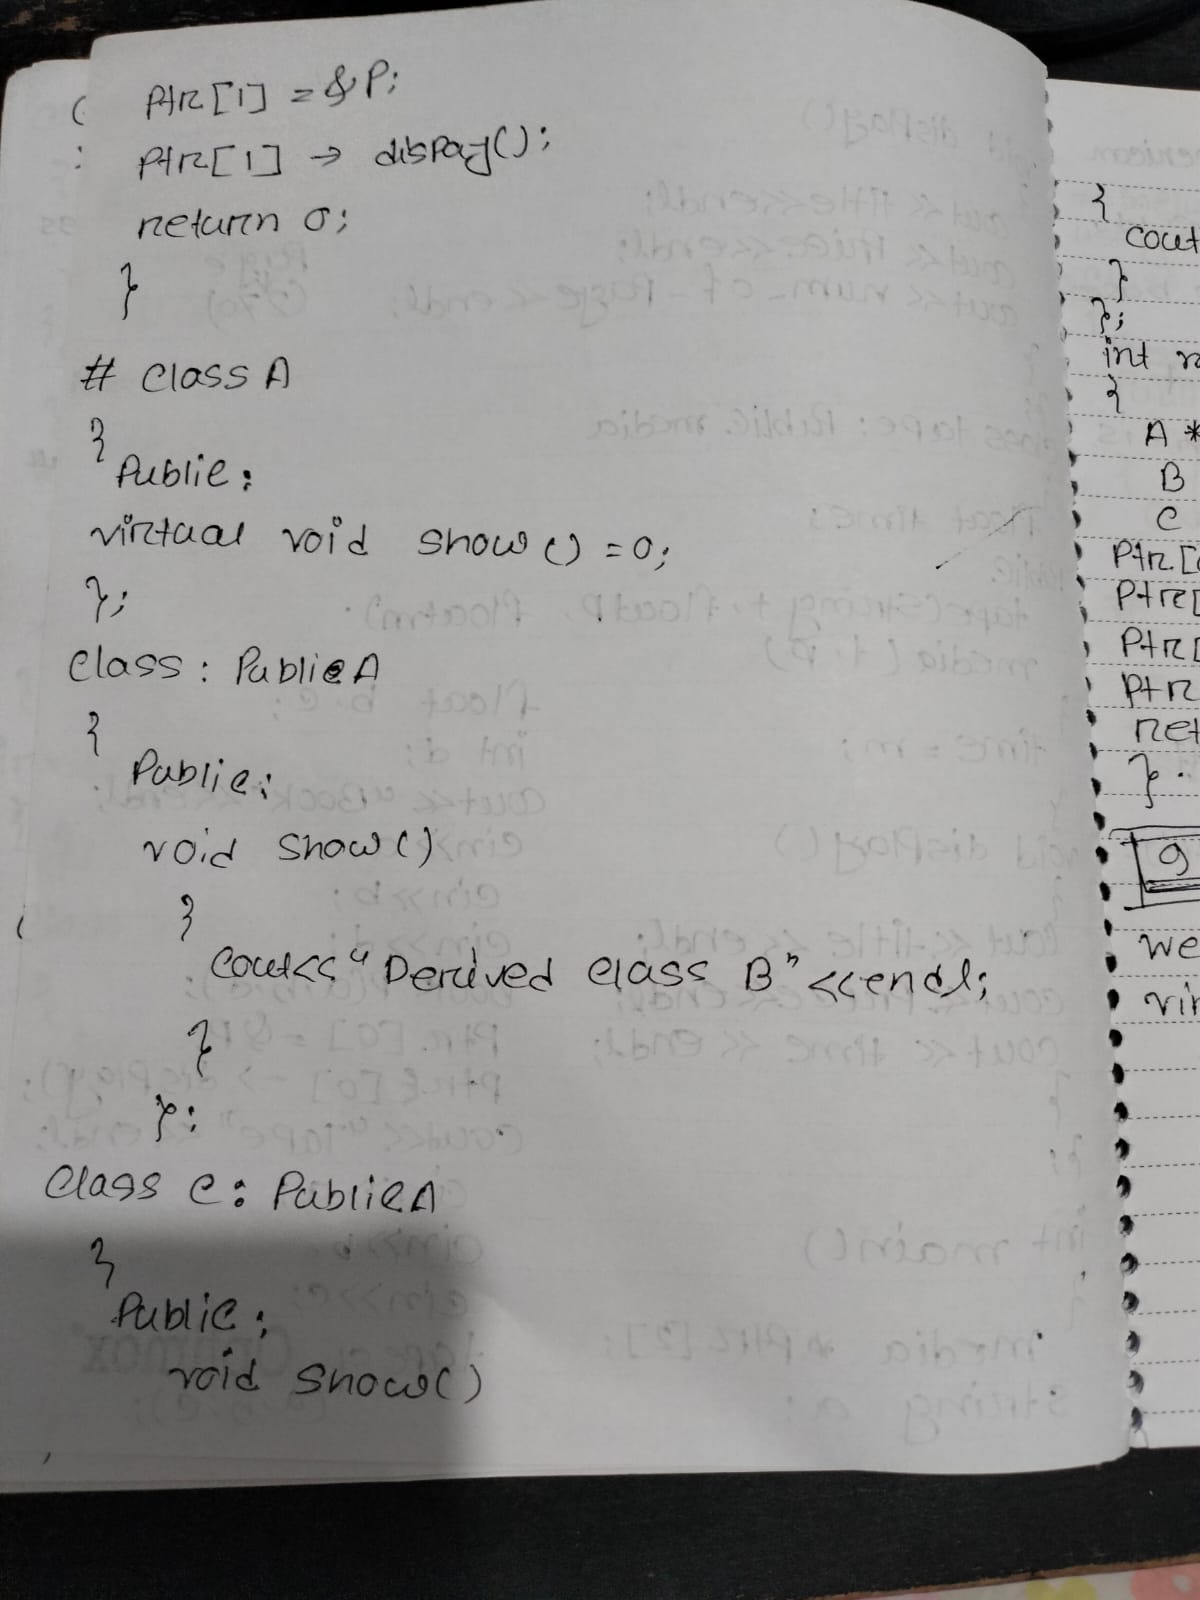 Ptr[1] = &P;
Ptr[1] → dispay();
return 0;
}
# class A
{
Public:
virtual void show() = 0;
};
Class : Public A
{
Public:
void show()
{
cout<< "Derived class B" <<endl;
}
};
Class C: Public A
{
Public:
void show()
{
cout
}
};
int
{
A *
B
C
Ptr[
Ptr[
Ptr[
Ptr
ret
}
9
we